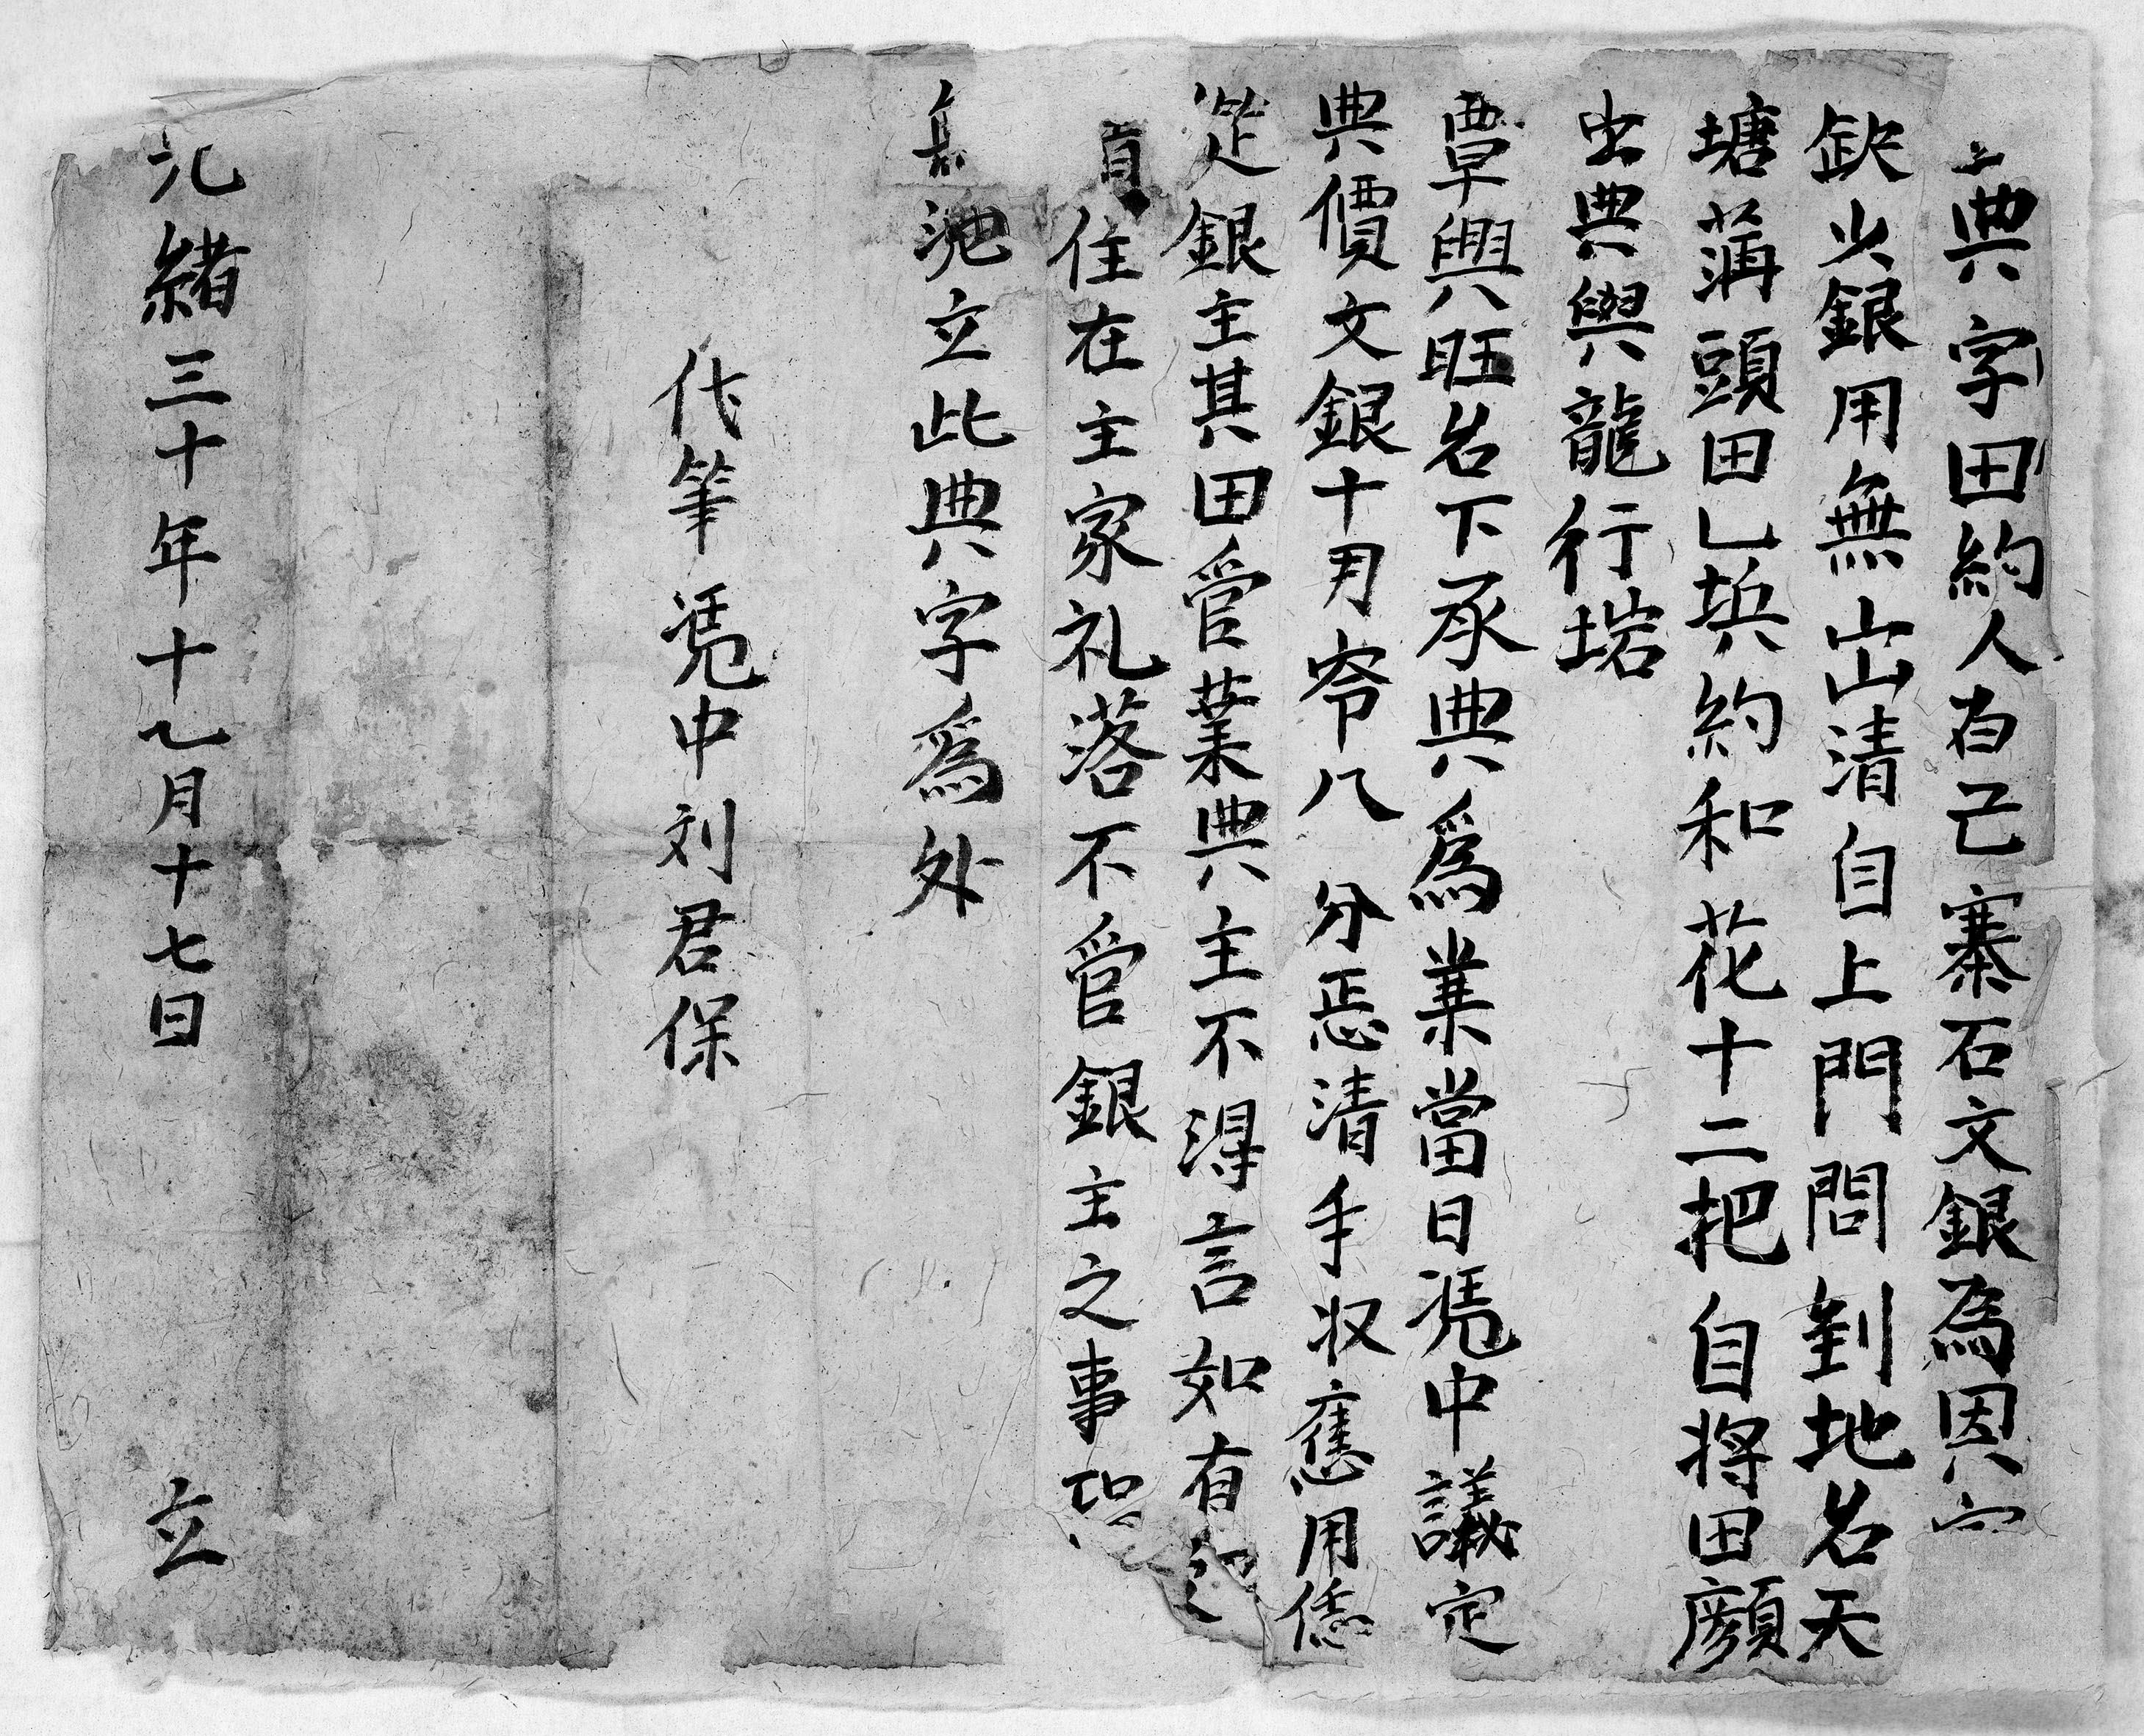 立典字田約人有己寨石文銀為因
缺少銀用無出清自上門問到地名天
塘蒲頭田乚坵約和花十二把自将田願
出典與龍行塔
覃興旺名下承典為業當日凴中議定
典價文銀十月零八分悉清手收應用恁
從銀主其田管業典主不淂言如有
住在主家礼落不管銀主之事
立此典字為处
代筆凴中刘君保
光緒三十年十乙月十七日 立